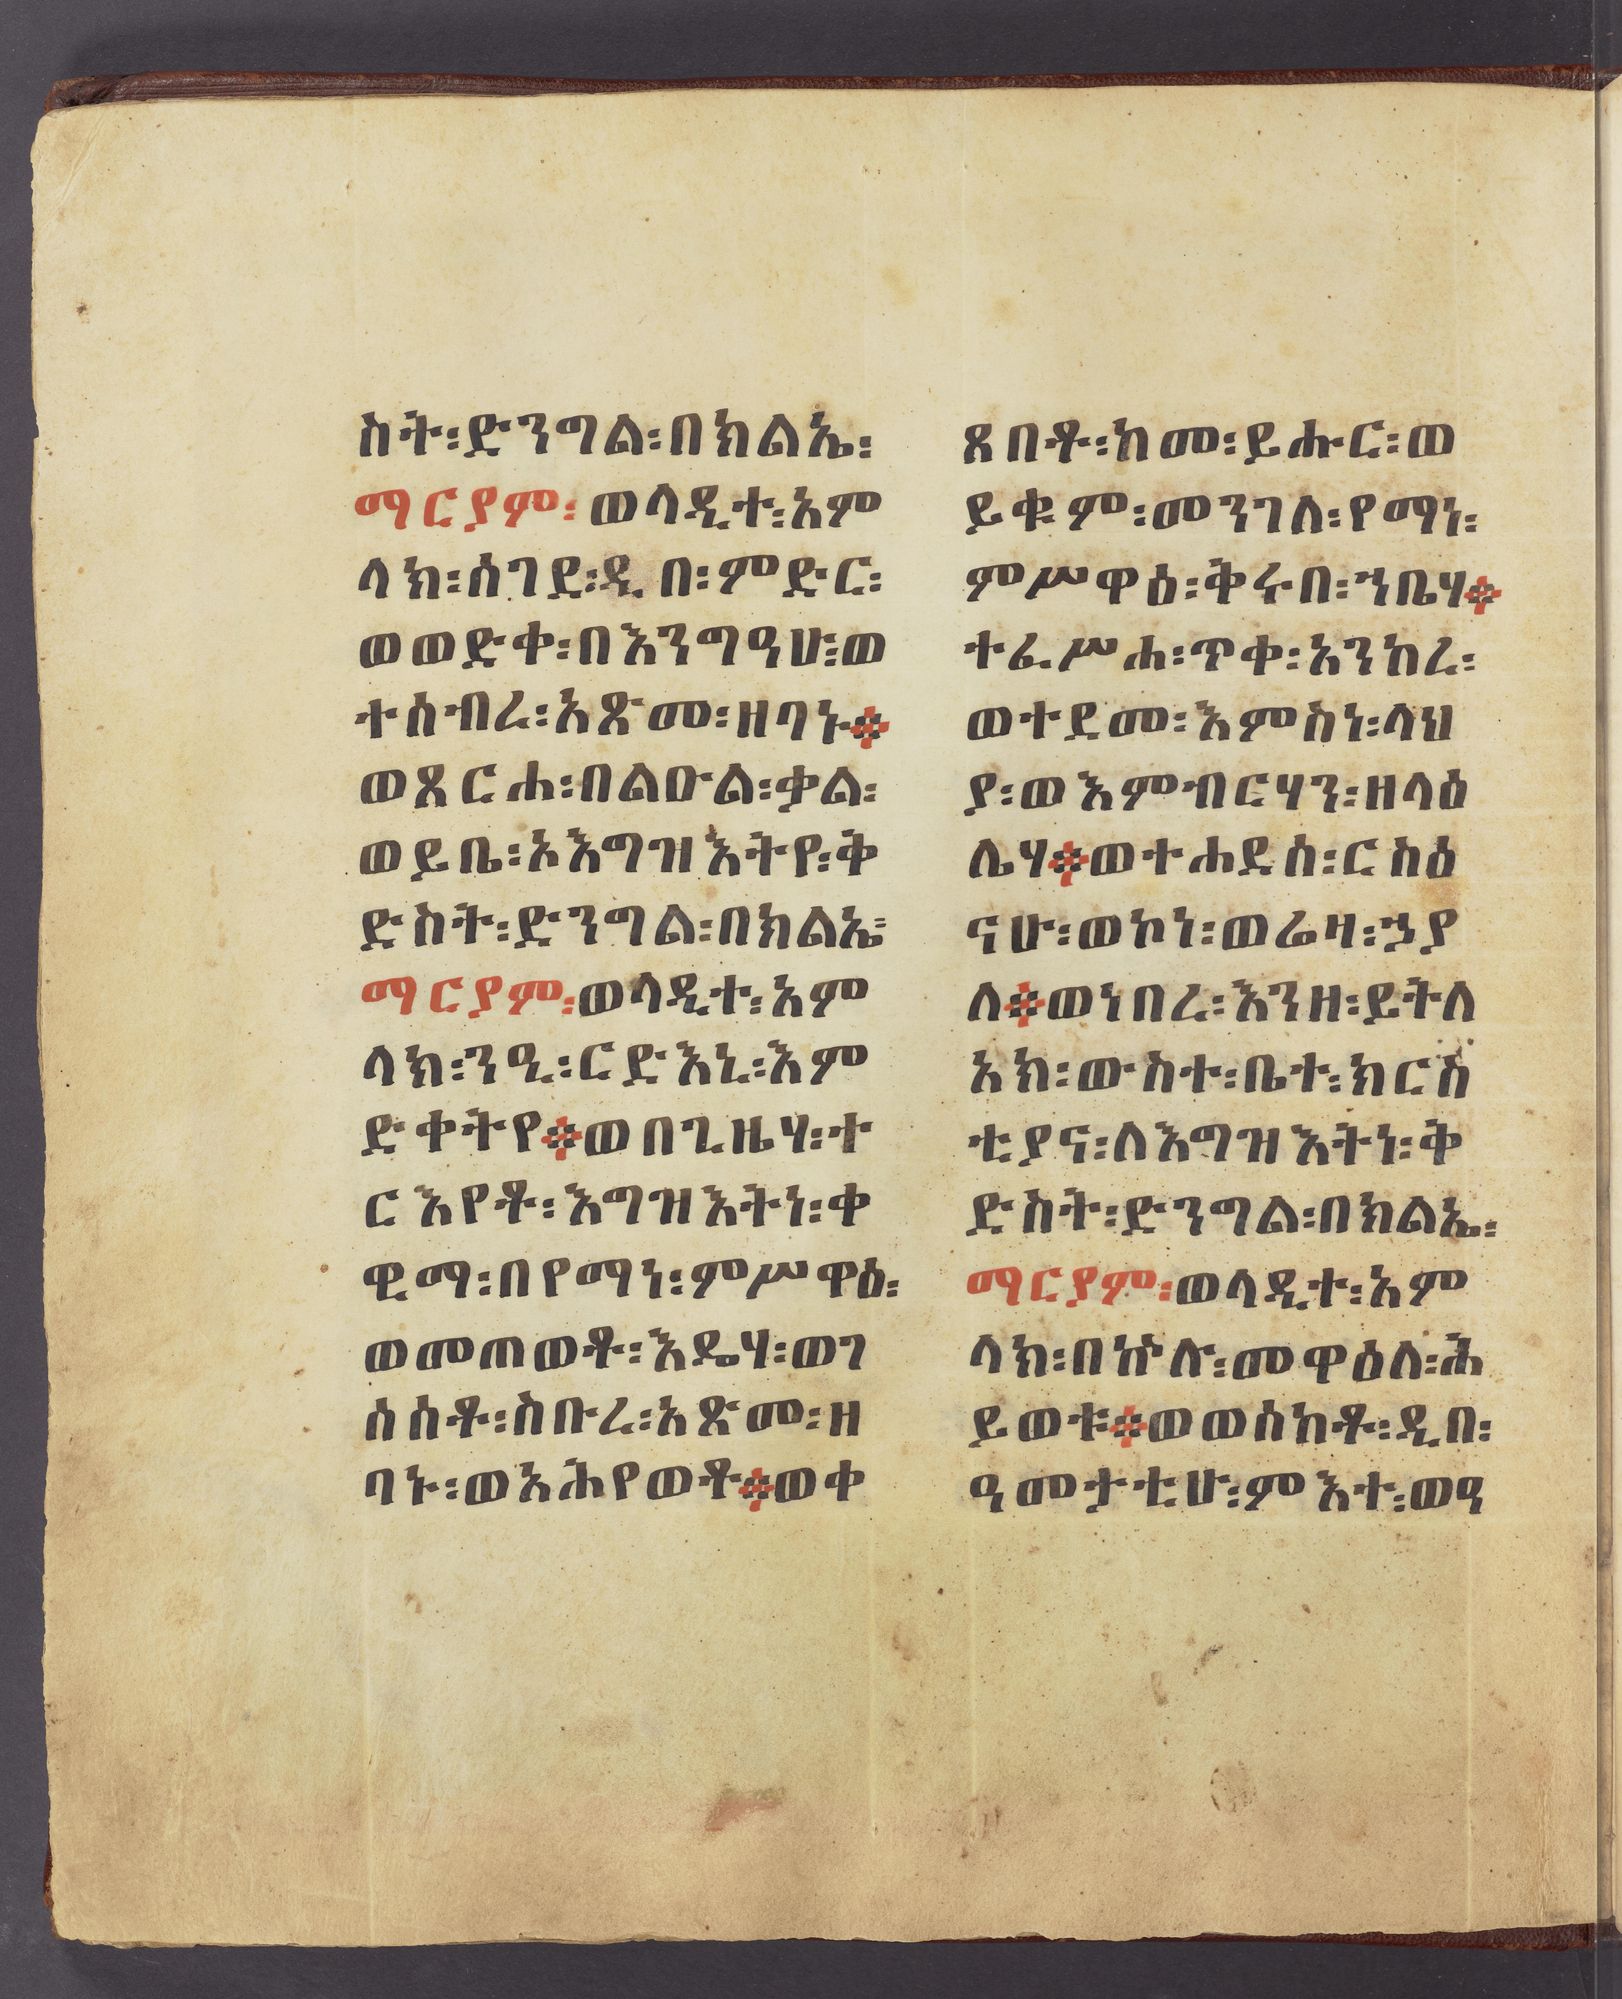 ስት፡ድንግል፡በክልኤ፡
ማርያም፡ወላዲተ፡አም
ላክ፡ሰገደ፡ዲበ፡ምድር፡
ወወድቀ፡በእንግዓሁ፡ወ
ተሰብረ፡አጽመ፡ዘባኑ፨
ወጸርሐ፡በልዑል፡ቃል፡
ወይቤ፡ኦእግዝእትየ፡ቅ
ድስት፡ድንግል፡በክልኤ፡
ማርያም፡ወላዲተ፡አም
ላክ፡ንዒ፡ርድእኒ፡እም
ድቀትየ፨ወበጊዜሃ፡ተ
ርእየቶ፡እግዝእትነ፡ቀ
ዊማ፡በየማነ፡ምሥዋዕ፡
ወመጠወቶ፡እዴሃ፡ወገ
ሰሰቶ፡ስቡረ፡አጽመ፡ዘ
ባኑ፡ወአሕየወቶ፨ወቀ
ጸበቶ፡ከመ፡ይሑር፡ወ
ይቁም፡መንገለ፡የማነ፡
ምሥዋዕ፡ቅሩበ፡ኀቤሃ፨
ተፈሥሐ፡ጥቀ፡አንከረ፡
ወተደመ፡እምስነ፡ላህ
ያ፡ወእምብርሃን፡ዘላዕ
ሌሃ፨ወተሐደሰ፡ርስዕ
ናሁ፡ወኮነ፡ወሬዛ፡ኃያ
ለ፨ወነበረ፡እንዘ፡ይትለ
አክ፡ውስተ፡ቤተ፡ክርስ
ቲያና፡ለእግዝእትነ፡ቅ
ድስት፡ድንግል፡በክልኤ፡
ማርያም፡ወላዲተ፡አም
ላክ፡በኵሉ፡መዋዕለ፡ሕ
ይወቱ፨ወወሰከቶ፡ዲበ፡
ዓመታቲሁ፡ምእተ፡ወዓ